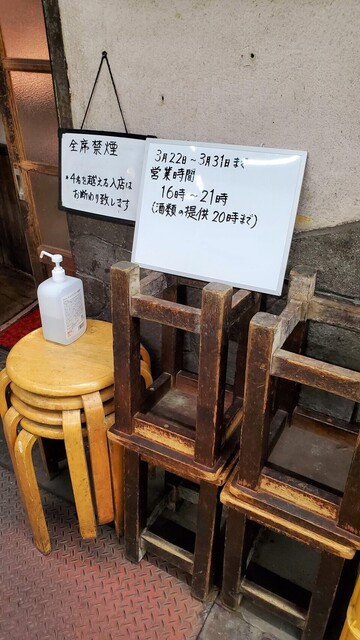 全席禁煙
*4名を越える入店は
お断わり致します
3月22日~3月31日まで
営業時間
16時~21時
(酒類の提供20時まで)